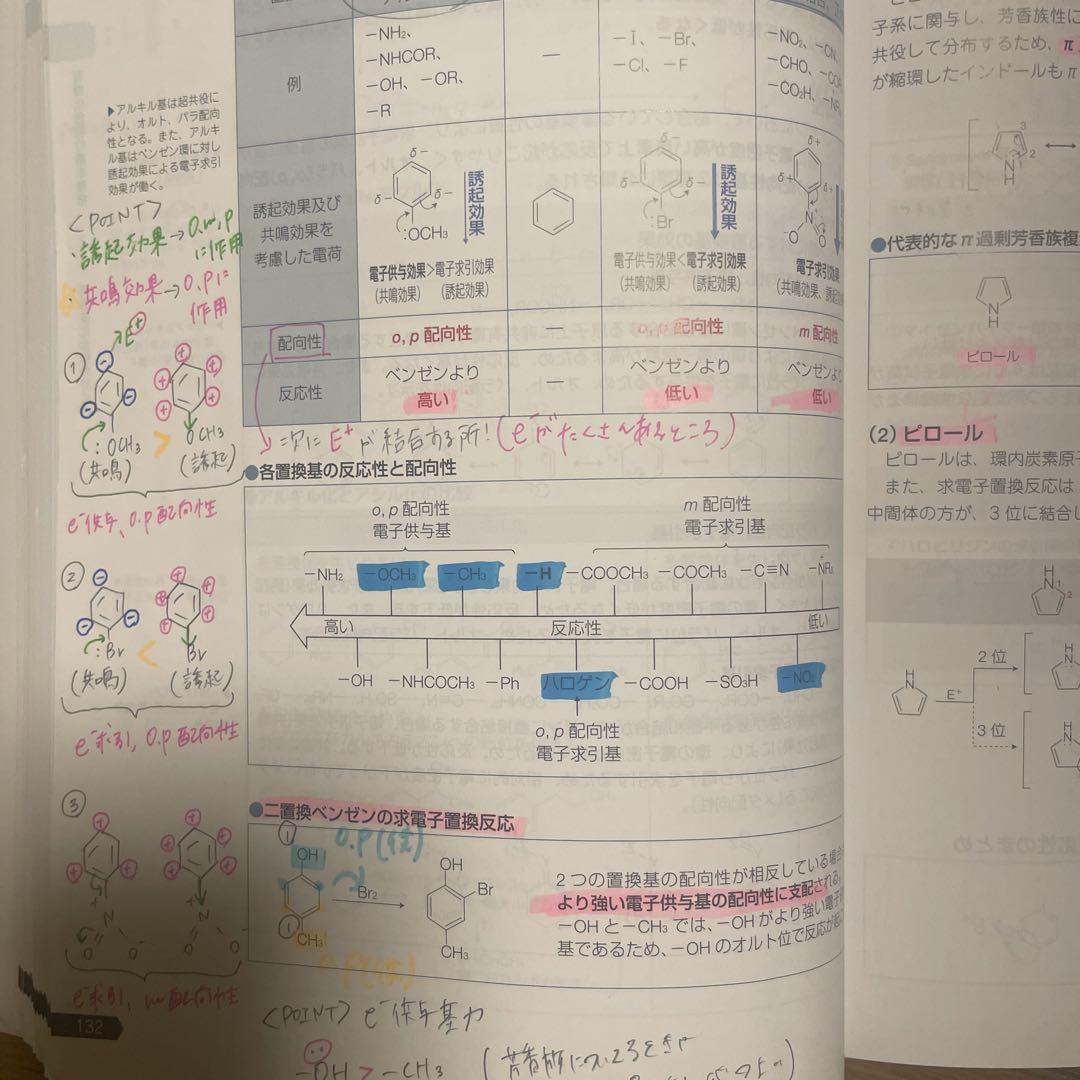 例
−NH₂、
−NHCOR、
−OH、−OR、
−R
—
−I、−Br、
−Cl、−F
−NO₂、−CN、
−CHO、
−CO₂H、
▶アルキル基は超共役に
より、オルト、パラ配向
性となる。また、アルキ
ル基はベンゼン環に対し
誘起効果による電子求引
効果が働く。
誘起効果及び
共鳴効果を
考慮した電荷
δ−
δ−
δ−
:OCH₃
誘起効果
電子供与効果>電子求引効果
(共鳴効果) (誘起効果)
δ−
δ−
δ−
:Br
誘起効果
電子供与効果<電子求引効果
(共鳴効果) (誘起効果)
δ+
δ+
δ+
N
−O
O
電子求引効果
(共鳴効果、誘起
配向性
o, p 配向性
—
o, p 配向性
m 配向性
反応性
ベンゼンより
高い
—
ベンゼンより
低い
ベンゼンより
低い
<POINT>
・誘起効果→o,m,p
に作用
共鳴効果→o,pに
作用
①
E⊕
:OCH₃
>
OCH₃
(共鳴)
(誘起)
e⁻供与、o.p配向性
②
:Br
<
Br
(共鳴)
(誘起)
e⁻求引, o.p配向性
③
N
O
O⁻
N
O
O⁻
e⁻求引, m配向性
132
→次にE⁺が結合する所!(e⁻がたくさんあるところ)
●各置換基の反応性と配向性
o, p 配向性
電子供与基
m 配向性
電子求引基
−NH₂ −OCH₃ −CH₃ −H −COOCH₃ −COCH₃ −C≡N −N⁺R₃
高い 反応性 低い
−OH −NHCOCH₃ −Ph ハロゲン −COOH −SO₃H −NO₂
o, p 配向性
電子求引基
●二置換ベンゼンの求電子置換反応
①
OH
o.p(强)
Br₂
①
CH₃
OH
Br
CH₃
2つの置換基の配向性が相反している場合
より強い電子供与基の配向性に支配される。
−OHと−CH₃では、−OHがより強い電子
基であるため、−OHのオルト位で反応が
<POINT> e⁻供与基力
−OH > −CH₃
子系に関与し、芳香族性に
共役して分布するため、π
が縮環したインドールもπ
3
2
N
H
1
●代表的なπ過剰芳香族複
N
H
ピロール
(2) ピロール
ピロールは、環内炭素原子
また、求電子置換反応は
中間体の方が、3位に結合し
H
N
1
2
H
N
E⁺
2位
3位